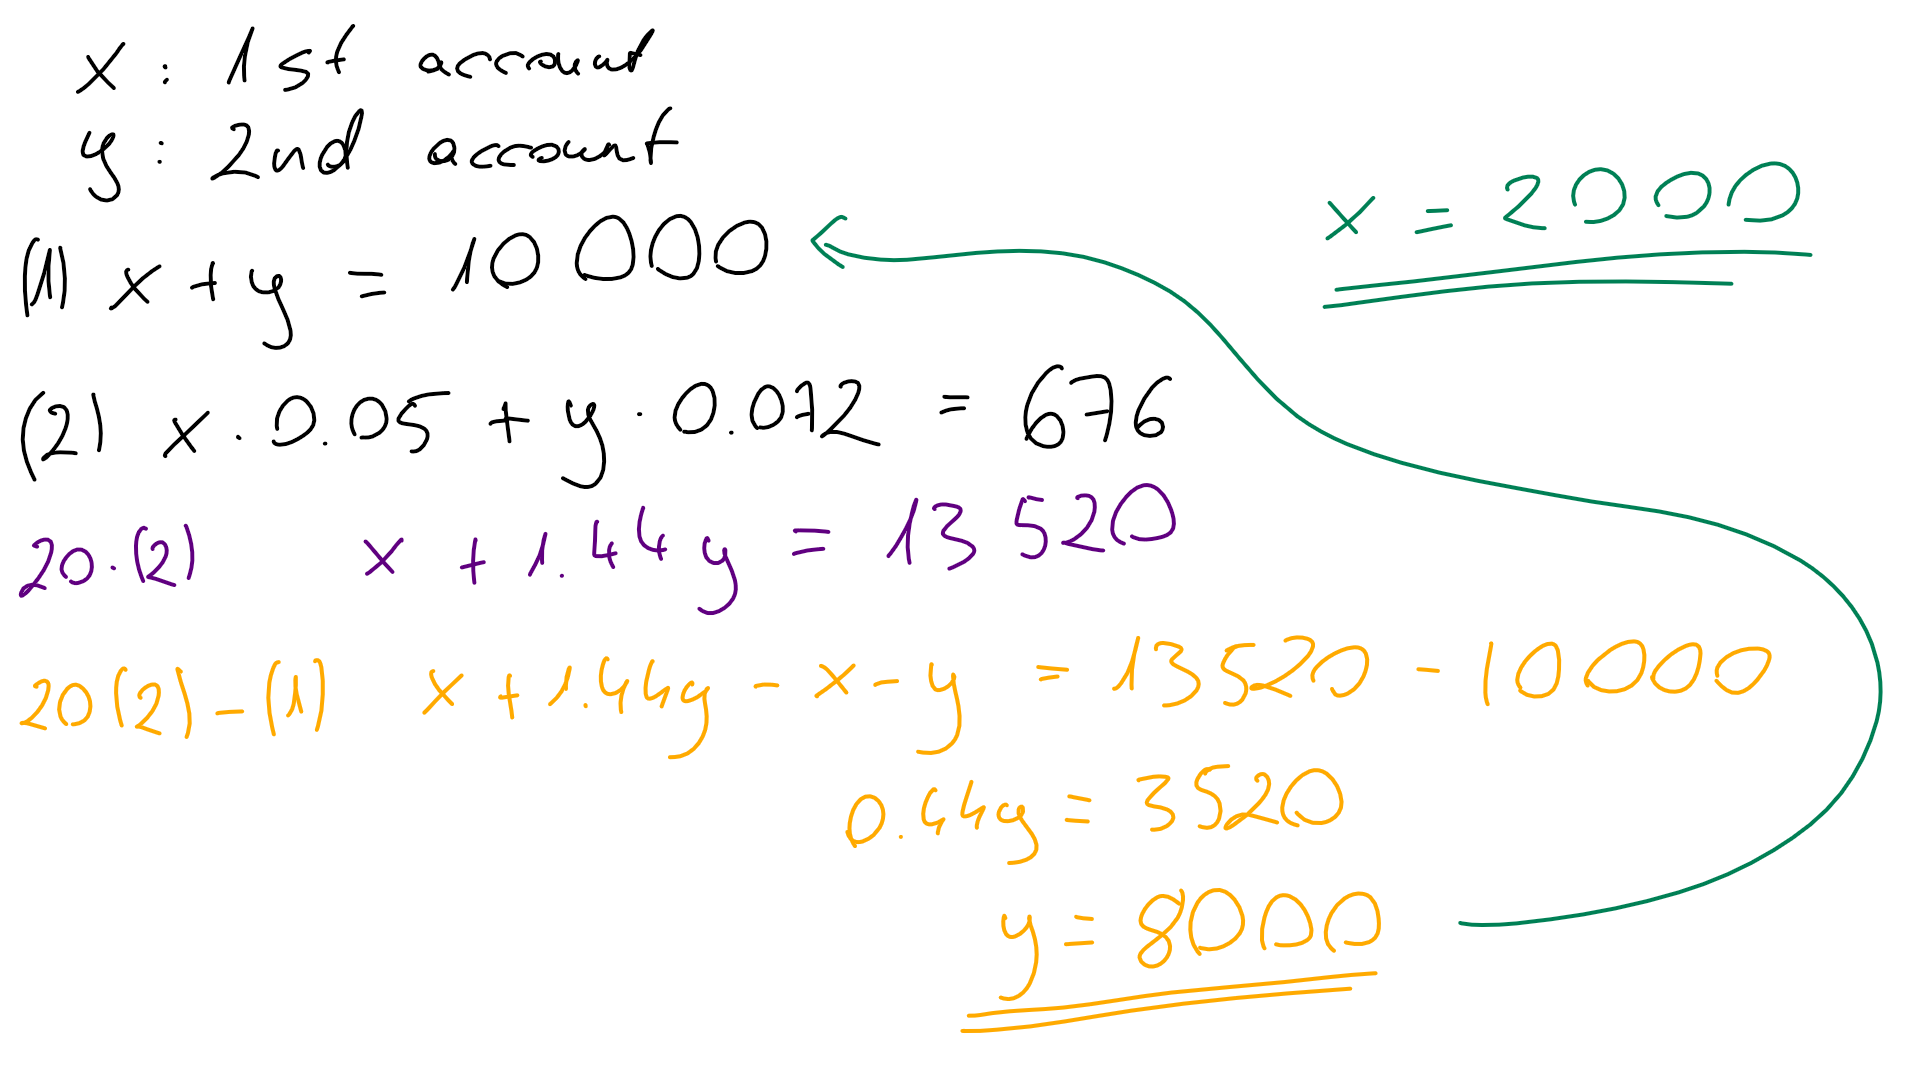 x : 1st account
y : 2nd account
(1) x + y = 10 000
x = 2000
(2) x · 0.05 + y · 0.072 = 676
20·(2) x + 1.44y = 13 520
20(2) - (1) x + 1.44y - x - y = 13520 - 10000
0.44y = 3520
y = 8000